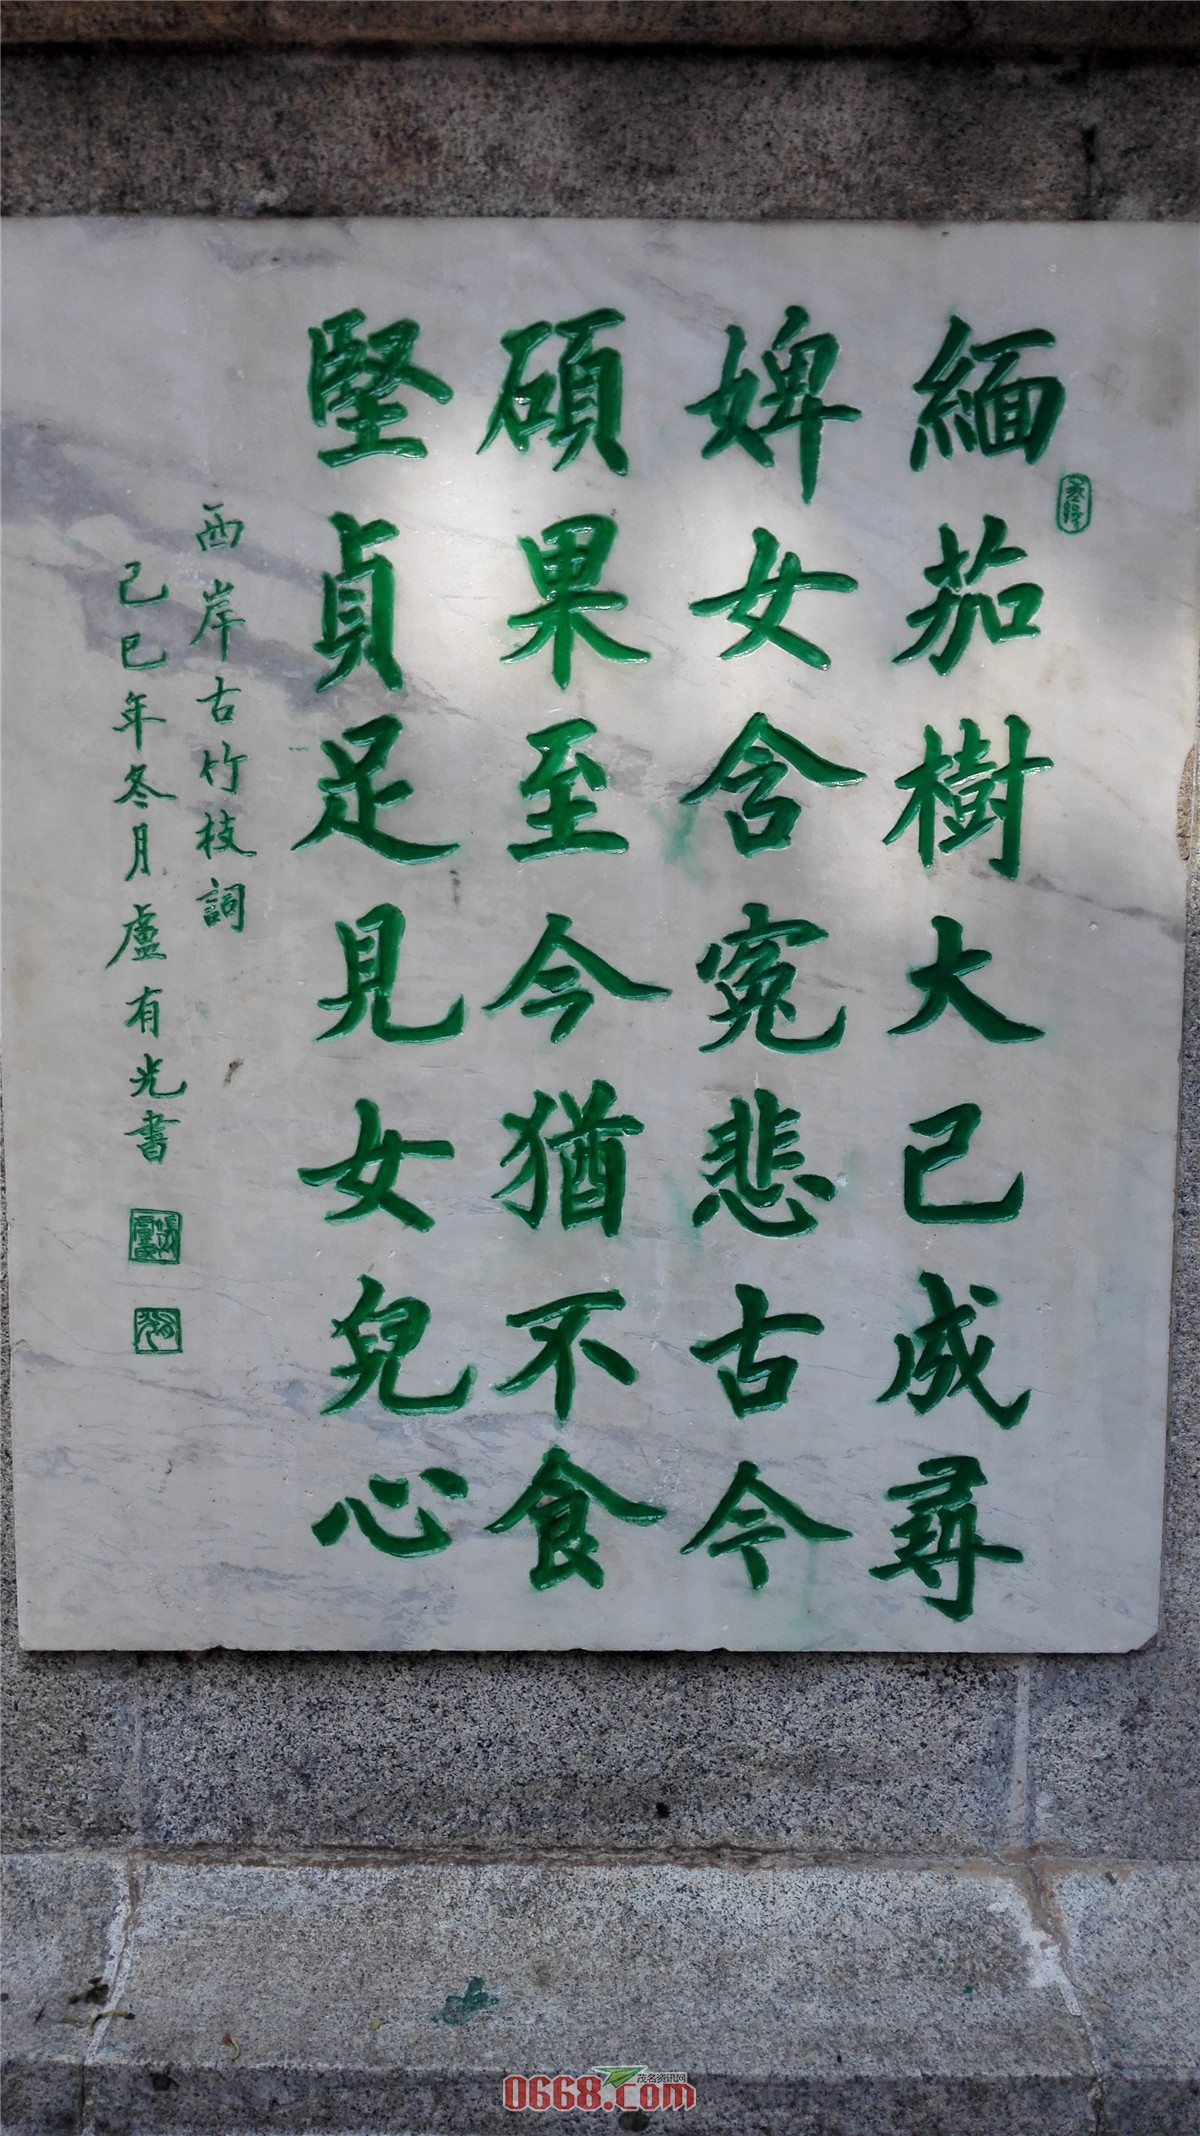 緬茄樹大已成尋
婢女含冤悲古今
碩果至今猶不食
堅貞足見女兒心
西岸古竹枝詞
己巳年冬月盧有光書
茂名资讯网
0668.com